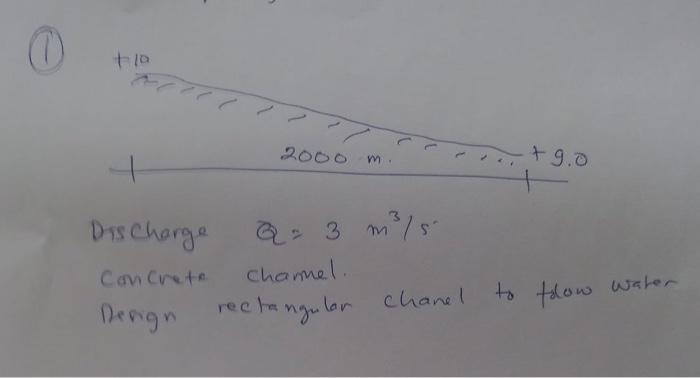 1
+10
2000 m.
+ 9.0
Discharge Q = 3 m³/s
Concrete channel.
Design rectangular chanel to flow water